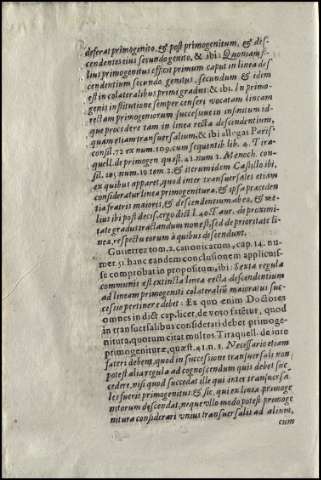 deferat primogenito, & post primogenitum, & des-
cendentes eius secundogenito, & ibi: Quoniam fi-
lius primogenitus efficit primum caput in linea des
cendentium secundo genitus, secundum & idem
est in colateralibus primi gradus: & ibi. In primo-
genii institutione semper censeri vocatam lineam
rectam primogeniorum successiue in infinitum id-
que procedere tam in linea recta descendentium,
quam etiam transuersalium, & ibi allegat Parisi
consil. 72 ex num. 109. cum sequentib lib. 4. Tira-
quell. de primogen quæst. 21. num 2. Menoch. con-
sil. num 19 tom 2. & iterum idem Castillo ibi,
ex quibus apparet, quod inter transuersales etiam
consideratur linea primogenitura, & ipsa præceden
tia fratris maioris, & descendentium ab eo, & me-
lius ibi post decis. ergo dict. l. 40 Taur. de proximi-
tate gradus tractandum non est, sed de prioritate li-
nea, respectu eorum à quibus descendunt.
Gutierrez tom 2. canonicarum, cap. 14. nu-
mer. 51. hanc eandem conclusionem applicuis-
se comprobat in propositum, ibi: Sexta regula
communis est extincta linea recta descendentium
ad lineam primogeniti colateralium maioratus suc-
cessio pertinere debet: Ex quo enim Doctores
omnes in dict cap. licet, de voto fatetur, quod
in transuersalibus considerari debet primoge-
nitura, quorum citat multos Tiraquell. de iure
primogenituræ, quæst. 41. n. 1. Necessario etiam
fateri debent, quod in successione transuersali non
potest alia regula ad cognoscendum quis debet suc-
cedere, nisi quod succedat ille qui inter transuersa-
les fuerit primogenitus: & sic, qui ex linea primoge
nitorum descendat, neque vllo modo potest primoge
nitura considerari vnius transuersalis ad alium,
cum